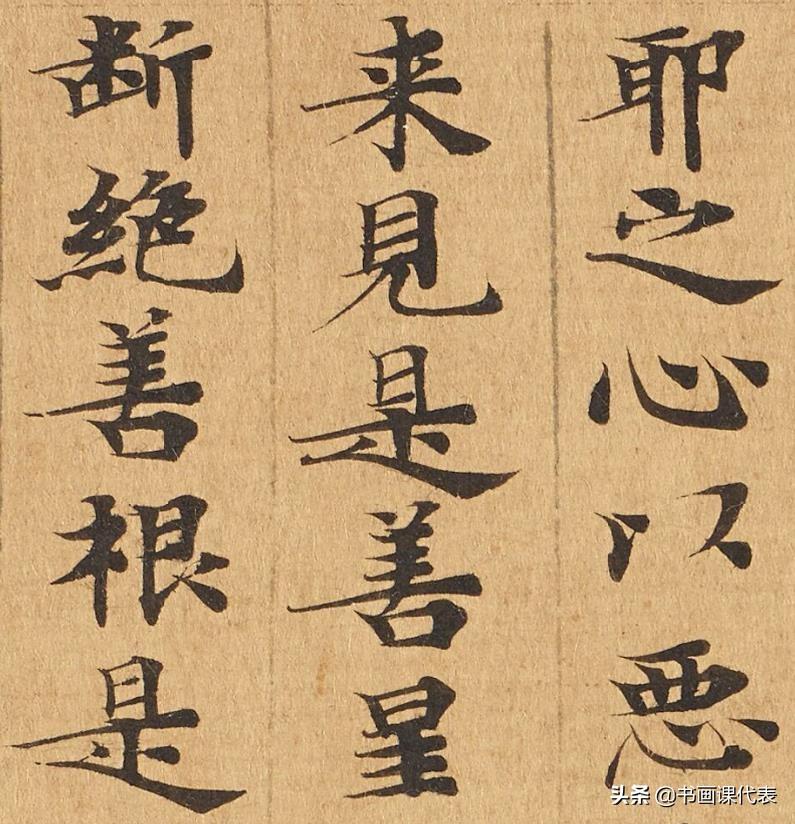 耶之心以惡
来見是善星
断絶善根是
头条 @书画课代表